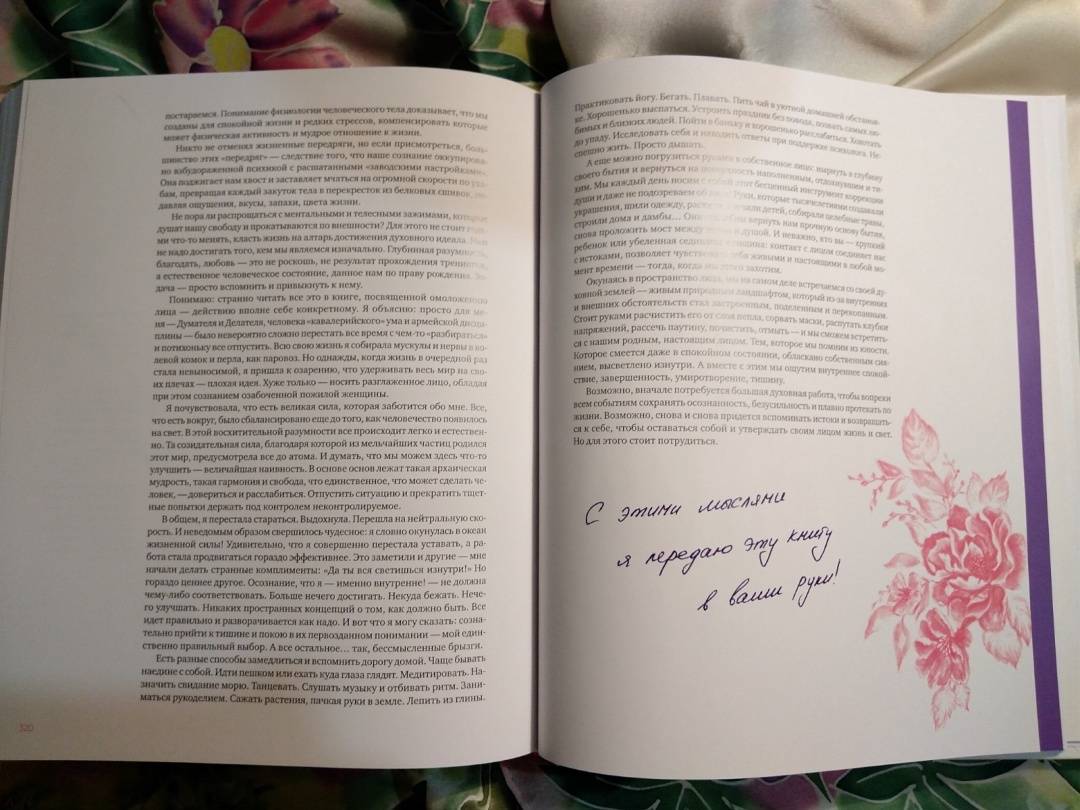 постараемся. Понимание физиологии человеческого тела доказывает, что мы
созданы для спокойной жизни и редких стрессов, компенсировать которые
может физическая активность и мудрое отношение к жизни.
Никто не отменял жизненные передряги, но если присмотреться, боль-
шинство этих «передряг» — следствие того, что наше сознание оккупирова-
но взбудораженной психикой с расшатанными «заводскими настройками».
Она поджигает нам хвост и заставляет метаться на огромной скорости по уха-
бам, превращая каждый закуток тела в перекресток из белковых сшивок,
давляя ощущения, вкусы, запахи, цвета жизни.
Не пора ли распрощаться с ментальными и телесными зажимами, которые
душат нашу свободу и прокатываются по внешности? Для этого не стоит
ми что-то менять, класть жизнь на алтарь достижения духовного идеала.
не надо достигать того, кем мы являемся изначально. Глубинная разумность,
благодать, любовь — это не роскошь, не результат прохождения тренингов,
а естественное человеческое состояние, данное нам по праву рождения. За-
дача — просто вспомнить и привыкнуть к нему.
Понимаю: странно читать все это в книге, посвященной омоложению
лица — действию вполне себе конкретному. Я объясню: просто для ме-
ня — Думателя и Делателя, человека «кавалерийского» ума и армейской дисци-
плины — было невероятно сложно перестать все время с чем-то «разбираться»
и потихоньку все отпустить. Всю свою жизнь я собирала мускулы и нервы в во-
левой комок и перла, как паровоз. Но однажды, когда жизнь в очередной раз
стала невыносимой, я пришла к озарению, что удерживать весь мир на сво-
их плечах — плохая идея. Хуже только — носить разглаженное лицо, обладая
при этом сознанием озабоченной пожилой женщины.
Я почувствовала, что есть великая сила, которая заботится обо мне. Все,
что есть вокруг, было сбалансировано еще до того, как человечество появилось
на свет. В этой восхитительной разумности все происходит легко и естествен-
но. Та созидательная сила, благодаря которой из мельчайших частиц родился
этот мир, предусмотрела все до атома. И думать, что мы можем здесь что-то
улучшить — величайшая наивность. В основе основ лежат такая архаическая
мудрость, такая гармония и свобода, что единственное, что может сделать че-
ловек, — довериться и расслабиться. Отпустить ситуацию и прекратить тщет-
ные попытки держать под контролем неконтролируемое.
В общем, я перестала стараться. Выдохнула. Перешла на нейтральную ско-
рость. И неведомым образом свершилось чудесное: я словно окунулась в океан
жизненной силы! Удивительно, что я совершенно перестала уставать, а ра-
бота стала продвигаться гораздо эффективнее. Это заметили и другие — мне
начали делать странные комплименты: «Да ты вся светишься изнутри!» Но
гораздо ценнее другое. Осознание, что я — именно внутренне! — не должна
чему-либо соответствовать. Больше нечего достигать. Некуда бежать. Нече-
го улучшать. Никаких пространных концепций о том, как должно быть. Все
идет правильно и разворачивается как надо. И вот что я могу сказать: созна-
тельно прийти к тишине и покою в их первозданном понимании — мой един-
ственно правильный выбор. А все остальное… так, бессмысленные брызги.
Есть разные способы замедлиться и вспомнить дорогу домой. Чаще бывать
наедине с собой. Идти пешком или ехать куда глаза глядят. Медитировать. На-
значить свидание морю. Танцевать. Слушать музыку и отбивать ритм. Зани-
маться рукоделием. Сажать растения, пачкая руки в земле. Лепить из глины.
320
Практиковать йогу. Бегать. Плавать. Пить чай в уютной домашней обстанов-
ке. Хорошенько выспаться. Устроить праздник без повода, позвать самых лю-
бимых и близких людей. Пойти в баньку и хорошенько расслабиться. Хохотать
до упаду. Исследовать себя и находить ответы при поддержке психолога. Не-
спешно жить. Просто дышать.
А еще можно погрузиться руками в собственное лицо: нырнуть в глубину
своего бытия и вернуться на поверхность наполненным, отдохнувшим и ти-
хим. Мы каждый день носим с собой этот бесценный инструмент коррекции
души и даже не подозреваем об этом! Руки, которые тысячелетиями создавали
украшения, шили одежду, качали детей, собирали целебные травы,
строили дома и дамбы… вернуть нам прочную основу бытия,
снова проложить мост между и душой. И неважно, кто вы — хрупкий
ребенок или убеленная сединами женщина: контакт с лицом соединяет нас
с истоками, позволяет чувствовать себя живыми и настоящими в любой мо-
мент времени — тогда, когда мы этого захотим.
Окунаясь в пространство лица, мы на самом деле встречаемся со своей ду-
ховной землей — живым природным ландшафтом, который из-за внутренних
и внешних обстоятельств стал застроенным, поделенным и перекопанным.
Стоит руками расчистить его от слоя пепла, сорвать маски, распутать клубки
напряжений, рассечь паутину, почистить, отмыть — и мы сможем встретить-
ся с нашим родным, настоящим лицом. Тем, которое мы помним из юности.
Которое смеется даже в спокойном состоянии, обласкано собственным сия-
нием, высветлено изнутри. А вместе с этим мы ощутим внутреннее спокой-
ствие, завершенность, умиротворение, тишину.
Возможно, вначале потребуется большая духовная работа, чтобы вопреки
всем событиям сохранять осознанность, безусильность и плавно протекать по
жизни. Возможно, снова и снова придется вспоминать истоки и возвращать-
ся к себе, чтобы оставаться собой и утверждать своим лицом жизнь и свет.
Но для этого стоит потрудиться.
С этими мыслями
я передаю эту книгу
в ваши руки!